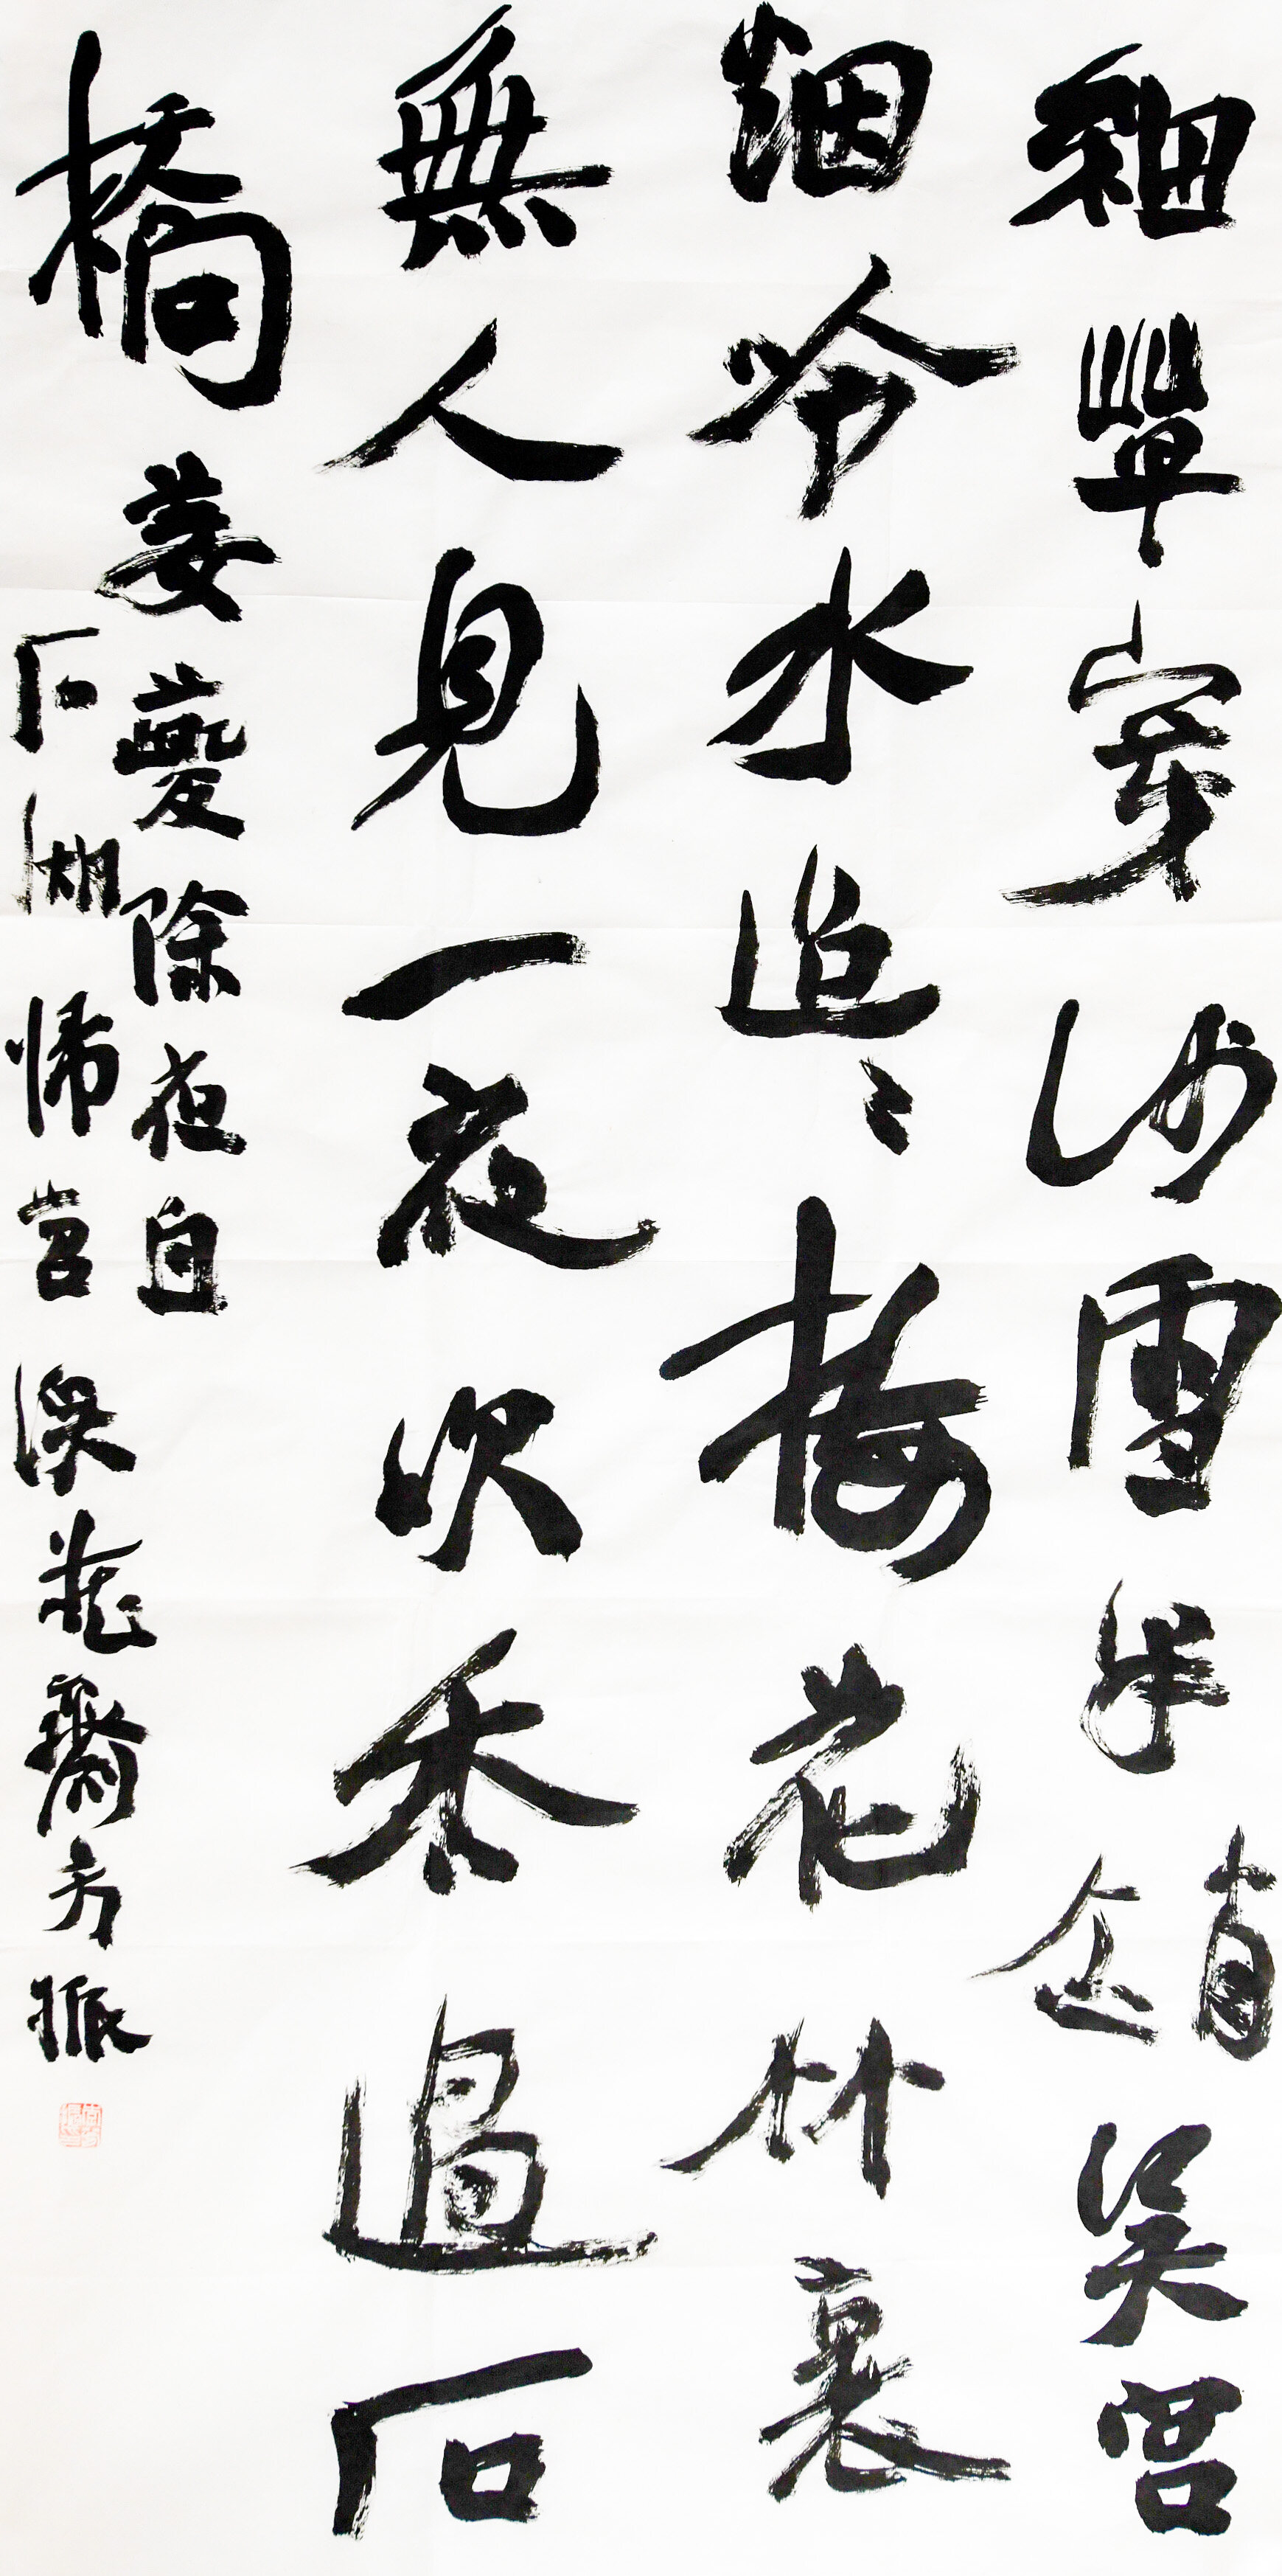 細草穿沙雪半銷吳宮
烟冷水迢〻梅花竹裏
無人見一夜吹香過石
橋 姜夔除夜自
石湖歸苕溪 龍齋方振